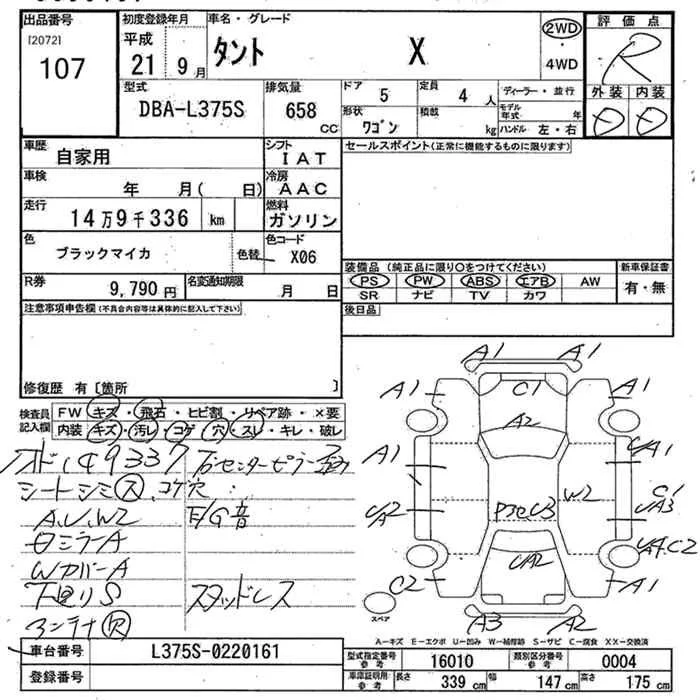 出品番号
[2072]
107
初度登録年月
平成
21 9月
車名・グレード
タント X
2WD
・
4WD
評価点
R
外装 内装
D D
型式
DBA-L375S
排気量
658
CC
ドア
5
定員
4 人
形状
ワゴン
積載
kg
ディーラー・並行
モデル年式 年
ハンドル 左・右
車歴
自家用
シフト
IAT
車検
年 月( 日)
冷房
AAC
走行
14万9千336 km
燃料
ガソリン
色
ブラックマイカ
色替
色コード
X06
R券
9,790円
名変通知期限
月 日
セールスポイント(正常に機能するものに限ります)
装備品 (純正品に限り○をつけてください)
PS PW ABS エアB AW
SR ナビ TV カワ
新車保証書
有・無
後日品
注意事項申告欄(不具合内容等は具体的に記入して下さい)
修復歴 有 [箇所 ]
検査員
記入欄
FW キズ・飛石・ヒビ割・リペア跡・×要
内装 キズ・汚レ・コゲ・穴・スレ・キレ・破レ
シートシミ ス、コゲ穴
A.U.W2
E/G音
ロミラーA
WカバーA
下回りS
スタッドレス
アンテナ欠
A1 A1
A1 C1 A1
A2
A1 UA1
UA2 W2 C1
UA3
UA2 UA1.C2
C2 A1
A3 A2
スペア
A-キズ E-エクボ U-凹み W-補修跡 S-サビ C-腐食 XX-交換済
車台番号
L375S-0220161
登録番号
型式指定番号
参考
16010
類別区分番号
参考
0004
車庫証明用
参考
長さ 339 cm
幅 147 cm
高さ 175 cm